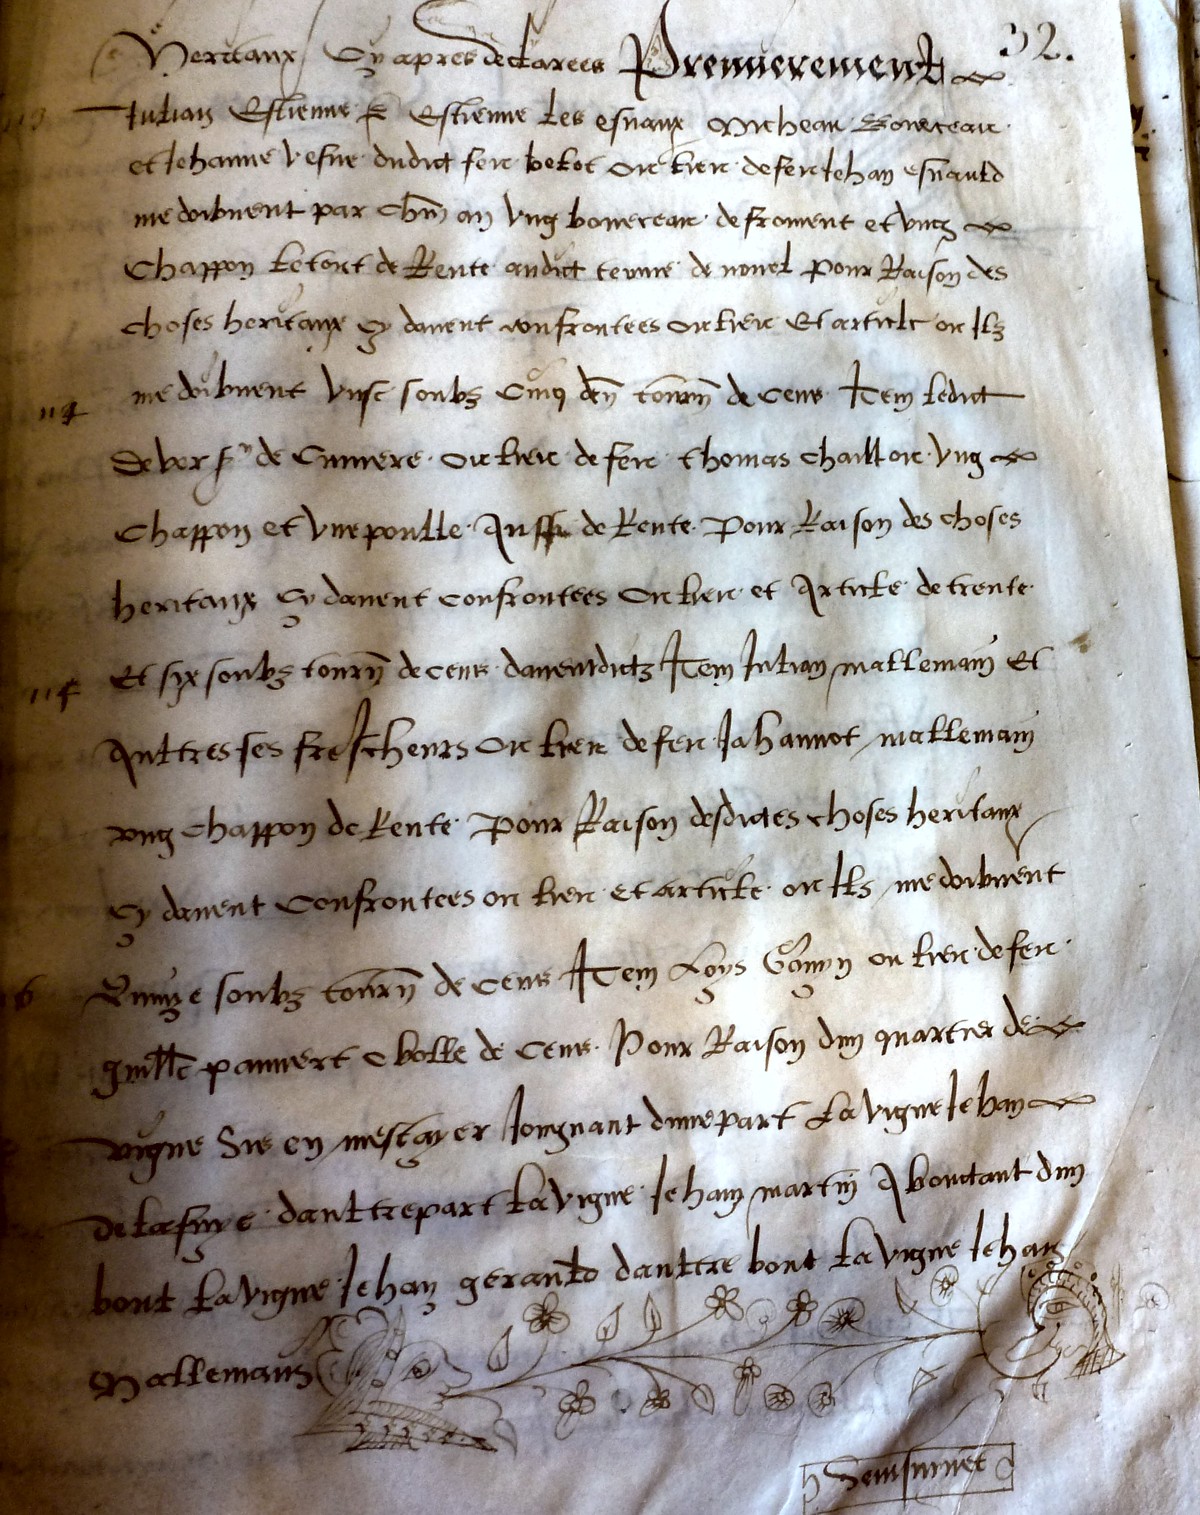 32.
heritaux Cy apres declarees Premierement
113
Julian Estienne Estienne les esnaux Micheau
et Jehanne vefve dudict feu ou lieu de feu Jehan esnauld
me doibvent par chũn an ung bouereau de froment et ung
Chappon le tout de Rente audict terme de nouel Pour Raison des
choses heritaux Cy davent confrontees ou lieu Et article ou Ilz
114
me doibvent unse soubz Cinq dẽn tourñ de cens Item ledict
de ou lieu de feu thomas chaillou ung
Chappon et une poulle Aussi de Rente Pour Raison des choses
heritaux Cy davent confrontees ou lieu et Article de trente
115
Et six soubz tourñ de cens daventdictz Item Julian mallemain Et
Aultres ses frescheurs ou lieu de feu Jahannot mallemain
ung Chappon de Rente Pour Raison desdictes choses heritaux
Cy davent Confrontees ou lieu et article ou Ilz me doibvent
6
Quinze soubz tourñ de cens Item Loys ou lieu de feu
guillẽ pauvert obolle de cens Pour Raison dun quartier de
vigne Sis en mestayer Joignant dune part La vigne Jehan
daultre part La vigne Jehan martin Aboutant dun
bout La vigne Jehan gerauld daultre bout La vigne Jehan
Mallemains